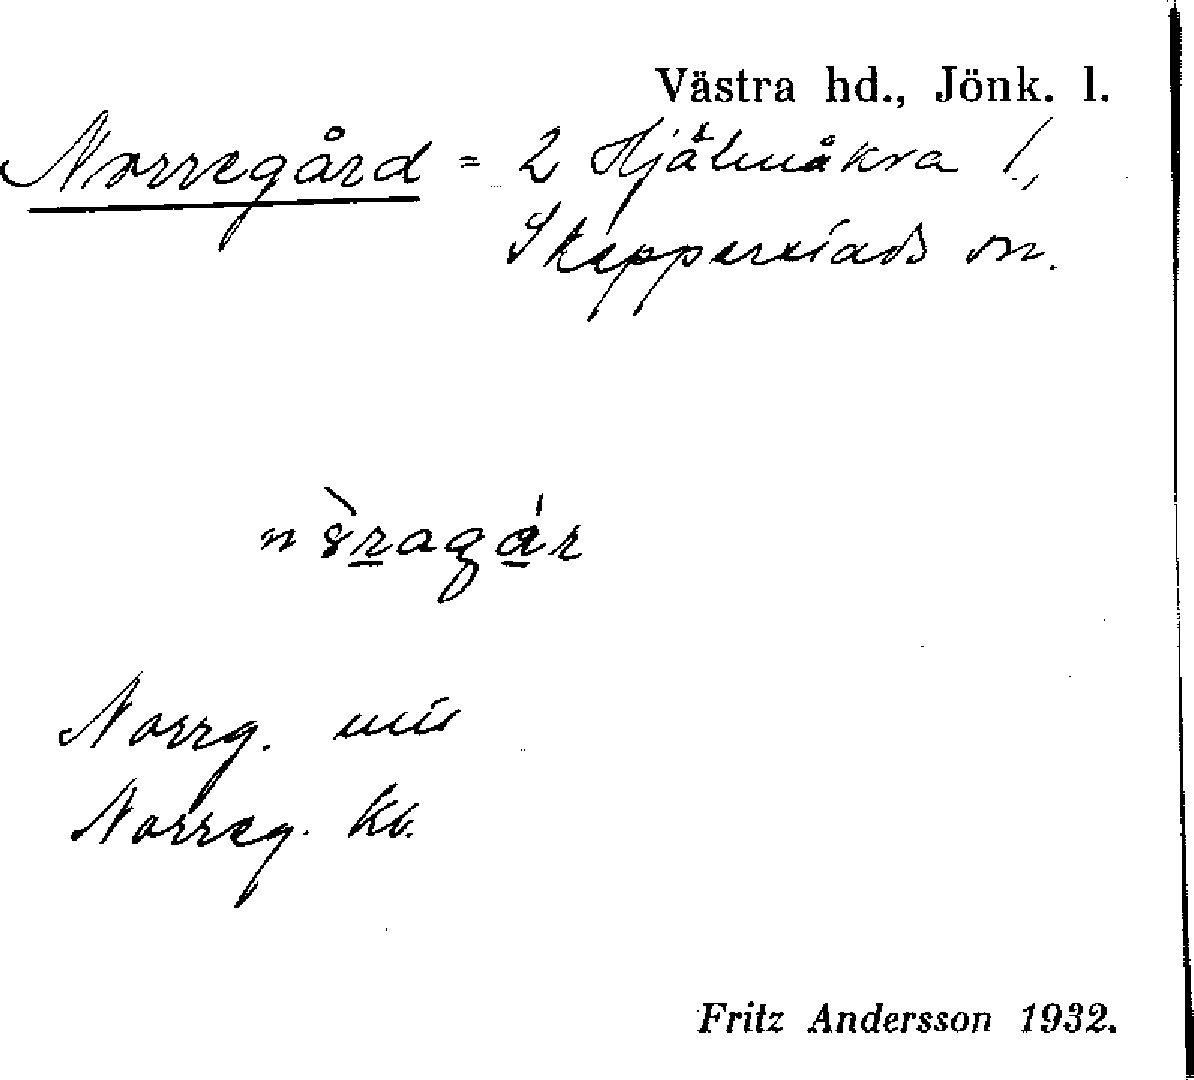 Västra hd., Jönk. l.
Norregård = 2 Hjälmåkra 1.,
Skepperstads sn.
Norrg. uiu
Norreg. kv.
Fritz Andersson 1932.